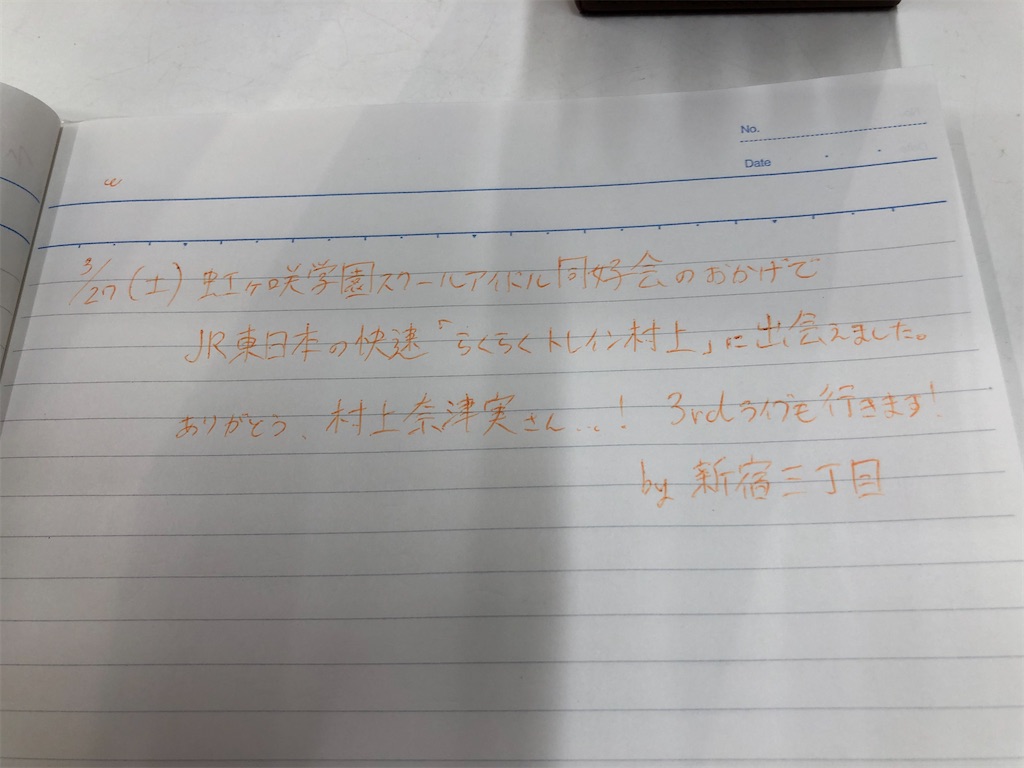 No.
Date
3/27(土) 虹ヶ咲学園スクールアイドル同好会のおかげで
JR東日本の快速「らくらくトレイン村上」に出会えました。
ありがとう、村上奈津実さん…! 3rdライブも行きます!
by 新宿三丁目